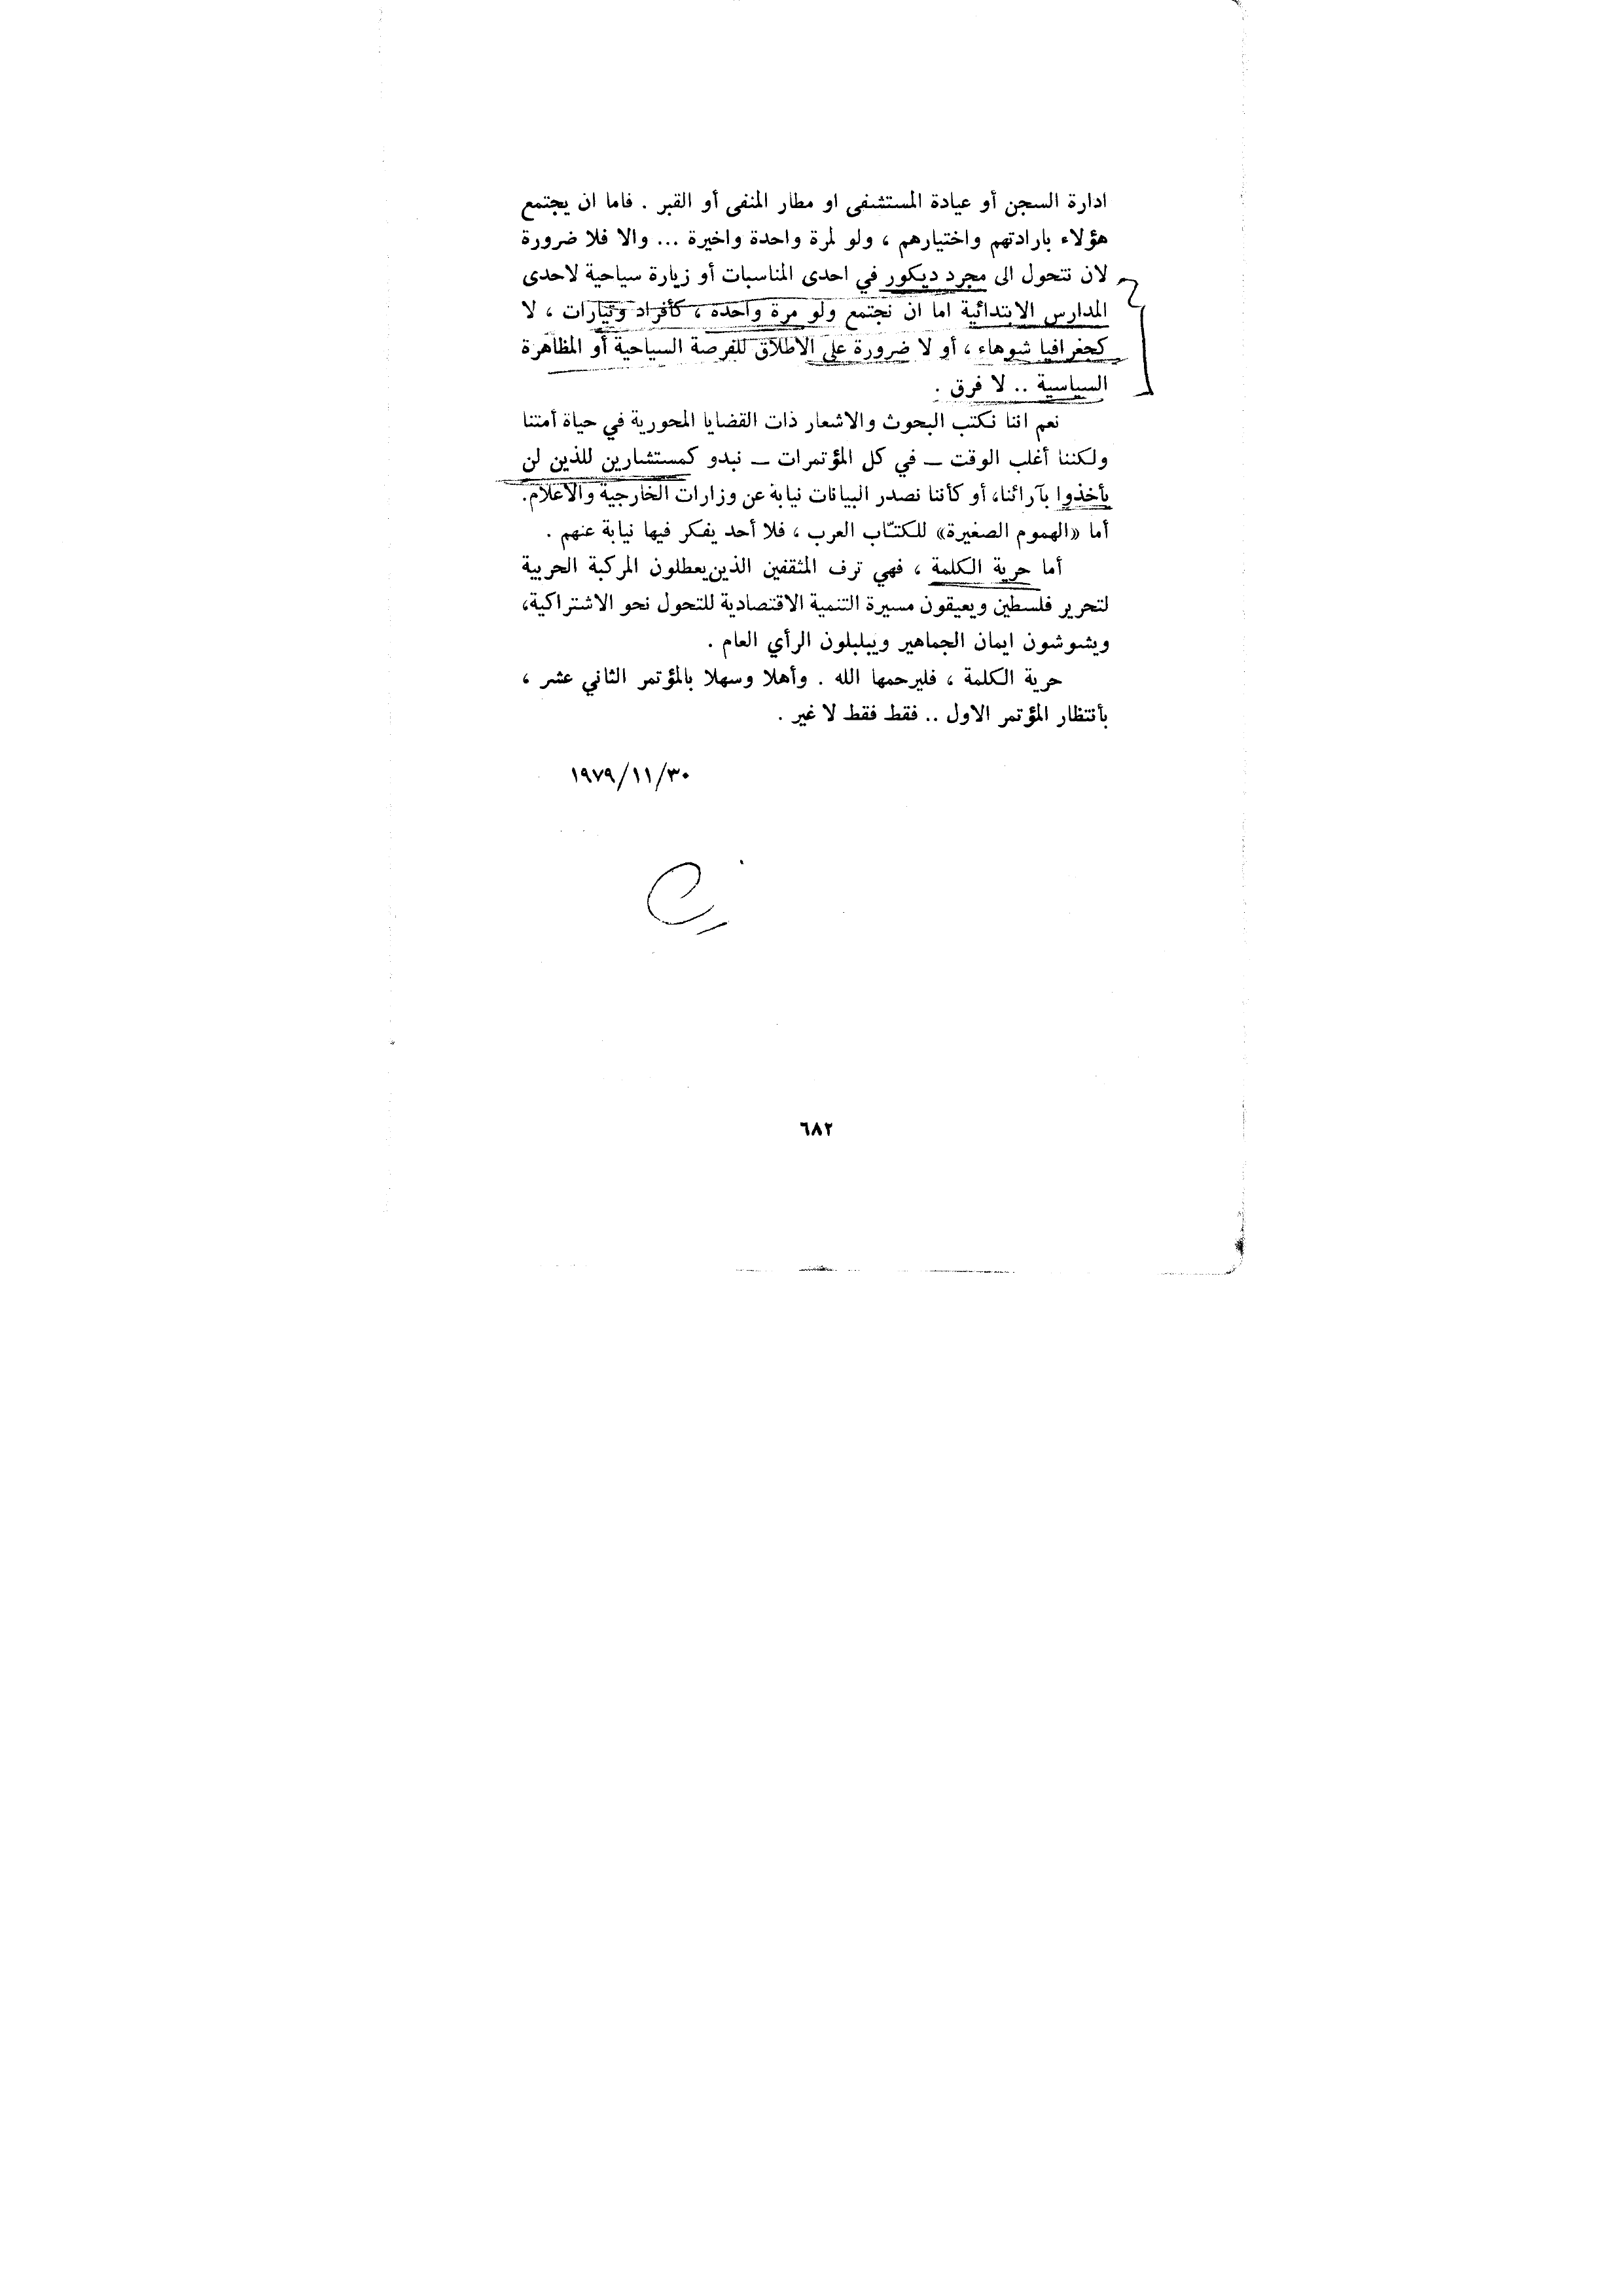 ادارة السجن أو عيادة المستشفى او مطار المنفى أو القبر . فاما ان يجتمع
هؤلاء بارادتهم واختيارهم ، ولو لمرة واحدة واخيرة ... والا فلا ضرورة
لان نتحول الى مجرد ديكور في احدى المناسبات أو زيارة سياحية لاحدى
المدارس الابتدائية اما ان نجتمع ولو مرة واحدة ، كأفراد وتيارات ، لا
كجغرافيا شوهاء ، أو لا ضرورة على الاطلاق للفرصة السياحية أو المظاهرة
السياسية .. لا فرق .
نعم اننا نكتب البحوث والاشعار ذات القضايا المحورية في حياة أمتنا
ولكننا أغلب الوقت ــ في كل المؤتمرات ــ نبدو كمستشارين للذين لن
يأخذوا بآرائنا، أو كأننا نصدر البيانات نيابة عن وزارات الخارجية والاعلام.
أما «الهموم الصغيرة» للكتّاب العرب ، فلا أحد يفكر فيها نيابة عنهم .
أما حرية الكلمة ، فهي ترف المثقفين الذين يعطلون المركبة الحربية
لتحرير فلسطين ويعيقون مسيرة التنمية الاقتصادية للتحول نحو الاشتراكية،
ويشوشون ايمان الجماهير ويبلبلون الرأي العام .
حرية الكلمة ، فليرحمها الله . وأهلا وسهلا بالمؤتمر الثاني عشر ،
بأنتظار المؤتمر الاول .. فقط فقط لا غير .
١٩٧٩/١١/٣٠
٦٨٢